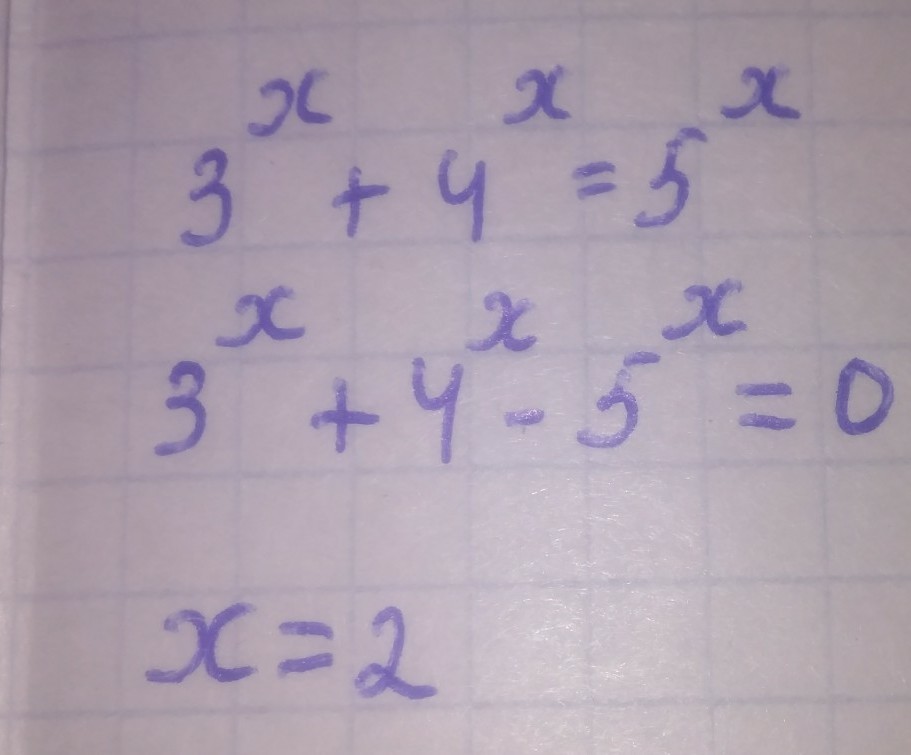 3^x + 4^x = 5^x
3^x + 4^x - 5^x = 0
x = 2